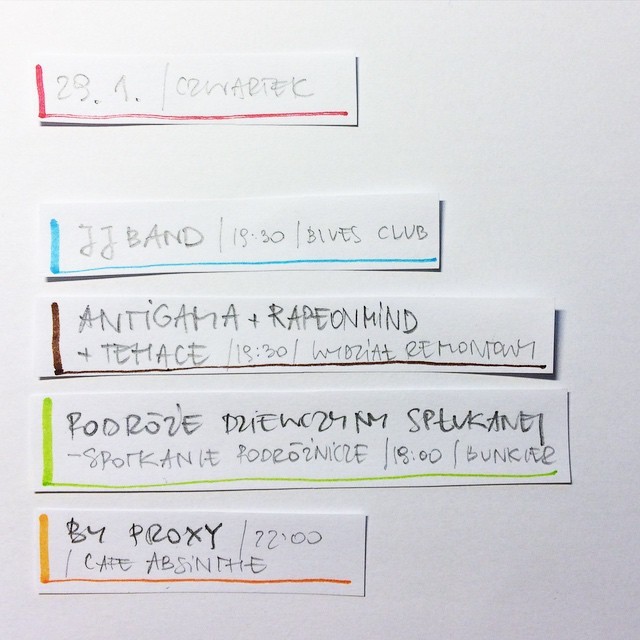 29.1. | CZWARTEK
JJ BAND | 19:30 | BLUES CLUB
ANTIGAMA + RAPEONMIND
+ TEHACE | 19:30 | WYDZIAŁ REMONTOWY
PODRÓŻE DZIEWCZYNY SPŁUKANEJ
- SPOTKANIE PODRÓŻNICZE | 18:00 | BUNKIER
BY PROXY | 22:00
| CAFE ABSINTHE